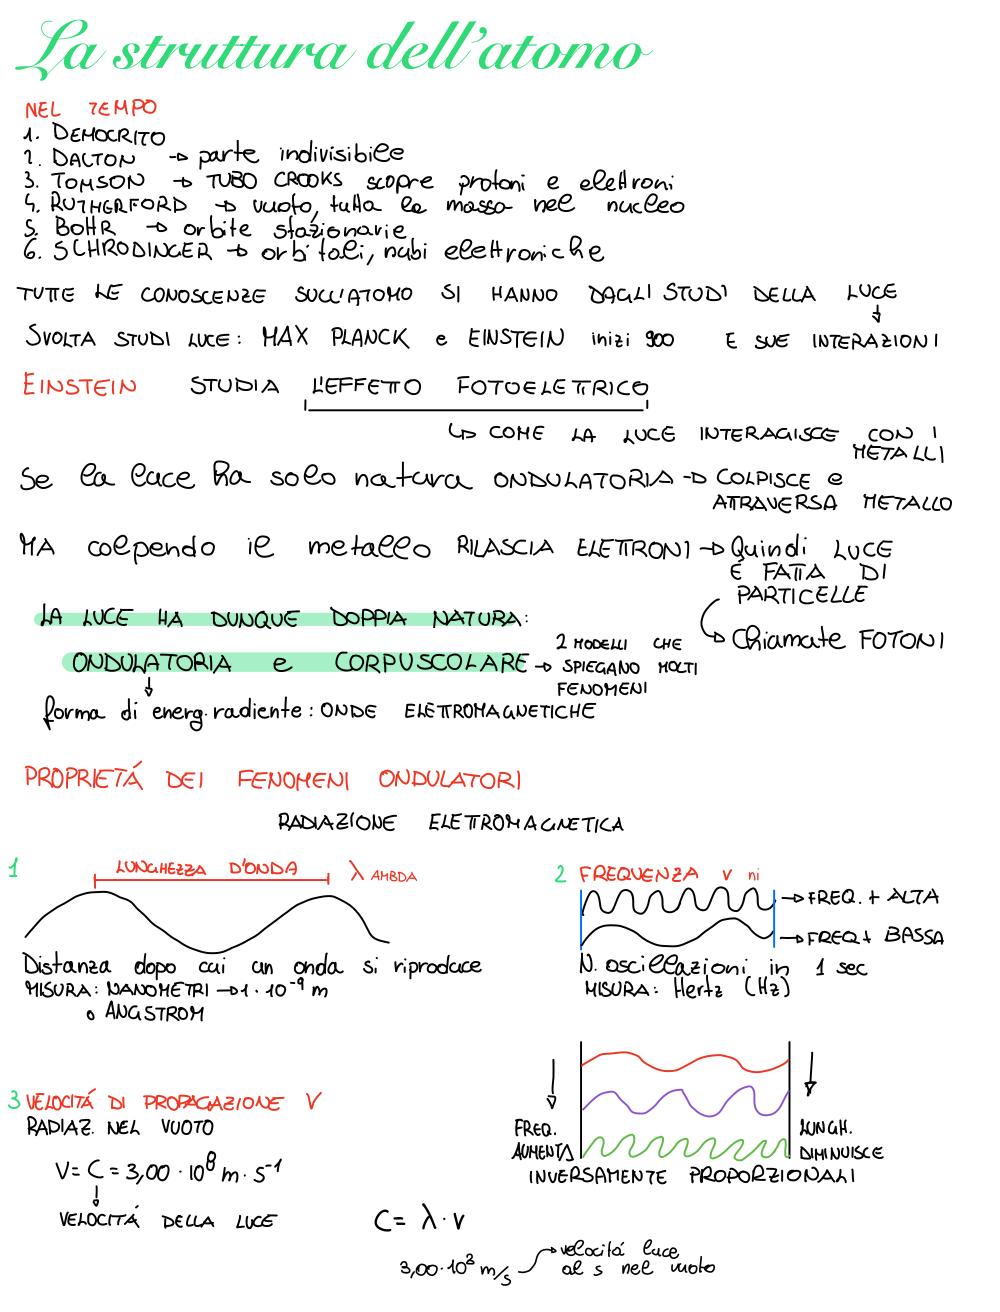 La struttura dell'atomo
NEL TEMPO
1. DEMOCRITO
2. DALTON → parte indivisibile
3. TOMSON → TUBO CROOKS scopre protoni e elettroni
4. RUTHERFORD → vuoto, tutta la massa nel nucleo
5. BOHR → orbite stazionarie
6. SCHRODINGER → orbitali, nubi elettroniche
TUTTE LE CONOSCENZE SULL'ATOMO SI HANNO DAGLI STUDI DELLA LUCE
↓
SVOLTA STUDI LUCE: MAX PLANCK e EINSTEIN inizi 900 E SUE INTERAZIONI
EINSTEIN STUDIA L'EFFETTO FOTOELETTRICO
↳ COME LA LUCE INTERAGISCE CON I
METALLI
Se la luce ha solo natura ONDULATORIA → COLPISCE e
ATTRAVERSA METALLO
MA colpendo il metallo RILASCIA ELETTRONI → Quindi LUCE
É FATTA DI
PARTICELLE
Chiamate FOTONI
LA LUCE HA DUNQUE DOPPIA NATURA:
ONDULATORIA e CORPUSCOLARE → 2 MODELLI CHE
SPIEGANO MOLTI
FENOMENI
↓
forma di energ. radiente: ONDE ELETTROMAGNETICHE
PROPRIETÁ DEI FENOMENI ONDULATORI
RADIAZIONE ELETTROMAGNETICA
1 LUNGHEZZA D'ONDA λ AMBDA
Distanza dopo cui un onda si riproduce
MISURA: NANOMETRI → 1 · 10⁻⁹ m
o ANGSTROM
2 FREQUENZA ν ni
→ FREQ. + ALTA
→ FREQ + BASSA
N. oscillazioni in 1 sec
MISURA: Hertz (Hz)
FREQ.
AUMENTA
LUNGH.
DIMINUISCE
INVERSAMENTE PROPORZIONALI
3 VELOCITÁ DI PROPAGAZIONE V
RADIAZ. NEL VUOTO
V = C = 3,00 · 10⁸ m · s⁻¹
↓
VELOCITÁ DELLA LUCE
C = λ · ν
3,00 · 10² m/s → velocitá luce
al s nel vuoto